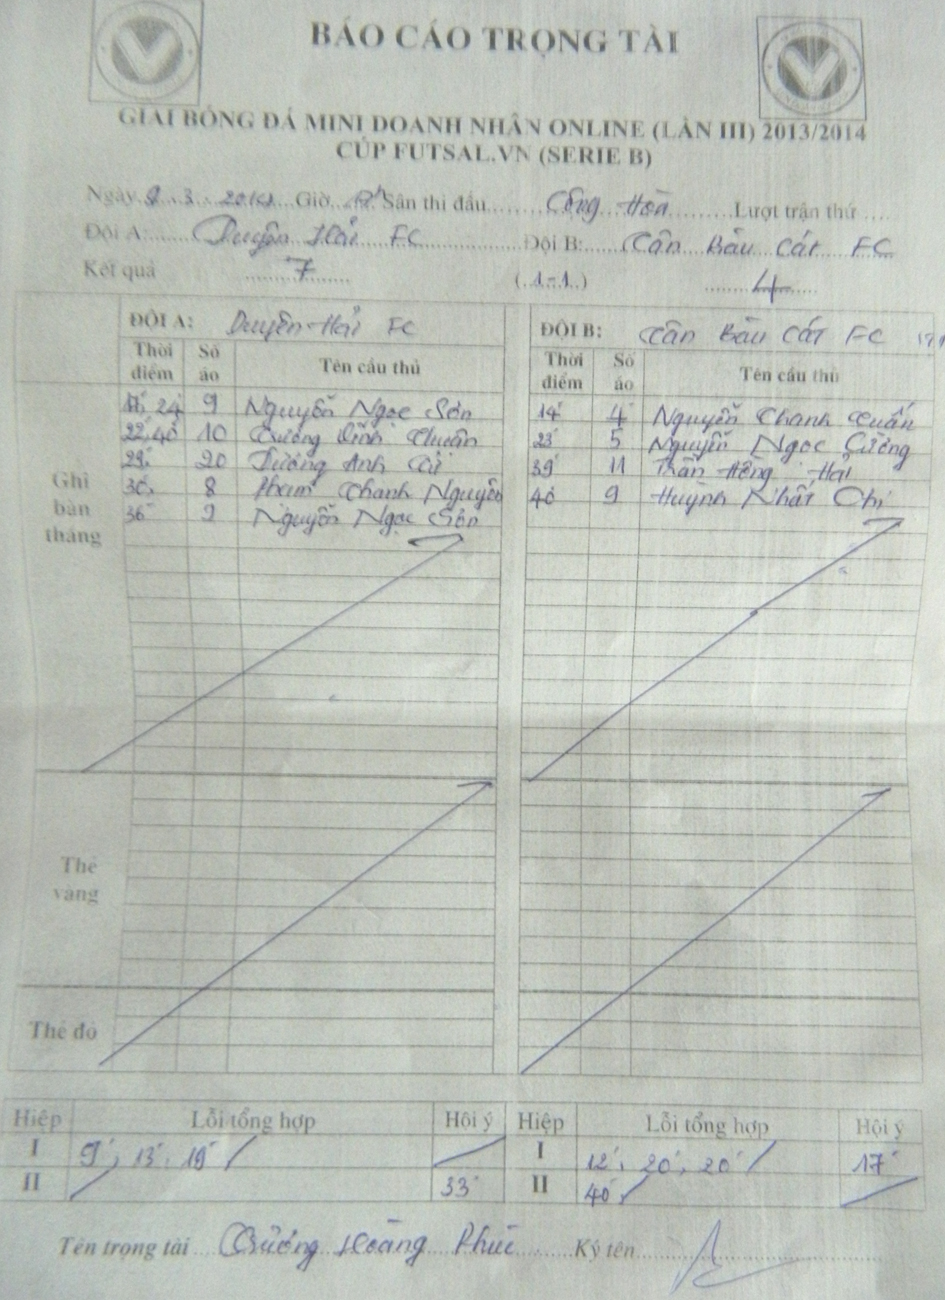 BÁO CÁO TRỌNG TÀI
GIẢI BÓNG ĐÁ MINI DOANH NHÂN ONLINE (LẦN III) 2013/2014
CÚP FUTSAL.VN (SERIE B)
Ngày 9.3.2014 Giờ Sân thi đấu Cộng Hòa Lượt trận thứ
Đội A: Duyên Hải FC Đội B: Tân Bàu Cát FC
Kết quả 7 (1-1) 4
ĐỘI A: Duyên Hải FC ĐỘI B: Tân Bàu Cát FC
Thời điểm Số áo Tên cầu thủ Thời điểm Số áo Tên cầu thủ
Ghi bàn thắng
24 9 Nguyễn Ngọc Sơn 14' 4 Nguyễn Thanh Tuấn
22, 40' 10 Trương Đình Thuân 23' 5 Nguyễn Ngọc Cường
29' 20 Dương Anh 39' 11 Trần Hồng Hải
36' 8 Phạm Thanh Nguyên 40' 9 Huỳnh Nhất Chi
36' 9 Nguyễn Ngọc Sơn
Thẻ vàng
Thẻ đỏ
Hiệp Lỗi tổng hợp Hội ý Hiệp Lỗi tổng hợp Hội ý
I 9', 13', 19' I 12', 20', 20' 17'
II 33' II 40'
Tên trọng tài Trương Hoàng Phúc Ký tên